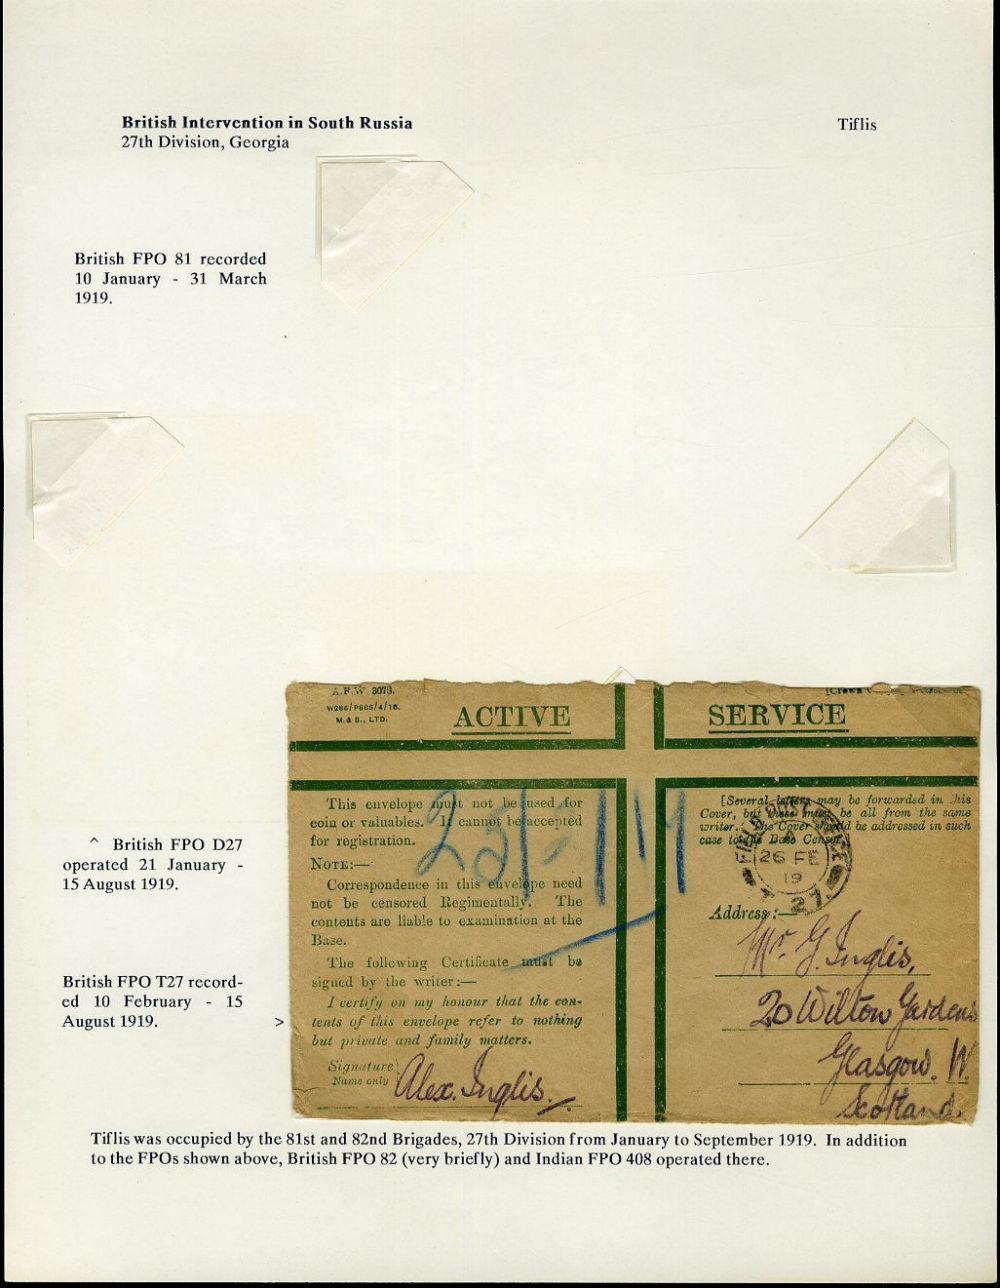 British Intervention in South Russia
27th Division, Georgia
Tiflis
British FPO 81 recorded
10 January - 31 March
1919.
^ British FPO D27
operated 21 January -
15 August 1919.
British FPO T27 record-
ed 10 February - 15
August 1919. >
A.F.W. 3078.
M. & S., LTD.
ACTIVE SERVICE
This envelope must not be used for
coin or valuables. It cannot be accepted
for registration.
NOTE:—
Correspondence in this envelope need
not be censored Regimentally. The
contents are liable to examination at the
Base.
The following Certificate must be
signed by the writer:—
I certify on my honour that the con-
tents of this envelope refer to nothing
but private and family matters.
Signature
Name only
Alex. Inglis.
[Several letters may be forwarded in this
Cover, but these must be all from the same
writer. The Cover should be addressed in such
case to the Base Censor.
FIELD POST OFFICE
A
26 FE
19
T 27
Address:—
Mr G. Inglis,
20 Wilton Gardens
Glasgow. W.
Scotland.
Tiflis was occupied by the 81st and 82nd Brigades, 27th Division from January to September 1919. In addition
to the FPOs shown above, British FPO 82 (very briefly) and Indian FPO 408 operated there.